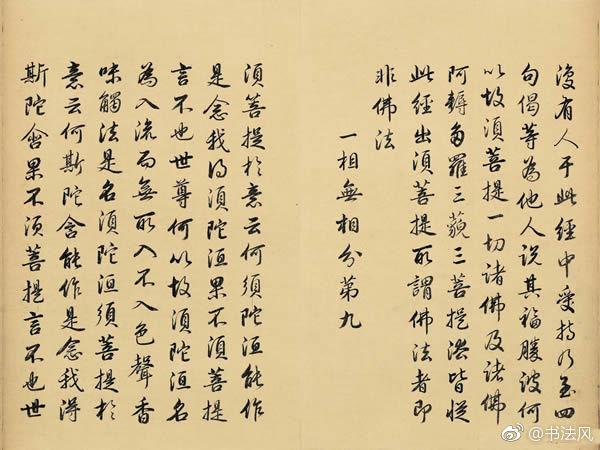 復有人于此經中受持乃至四
句偈等為他人說其福勝彼何
以故須菩提一切諸佛及諸佛
阿耨多羅三藐三菩提法皆從
此經出須菩提所謂佛法者即
非佛法
一相無相分第九
須菩提於意云何須陀洹能作
是念我得須陀洹果不須菩提
言不也世尊何以故須陀洹名
為入流而無所入不入色聲香
味觸法是名須陀洹須菩提於
意云何斯陀含能作是念我得
斯陀含果不須菩提言不也世
@书法风